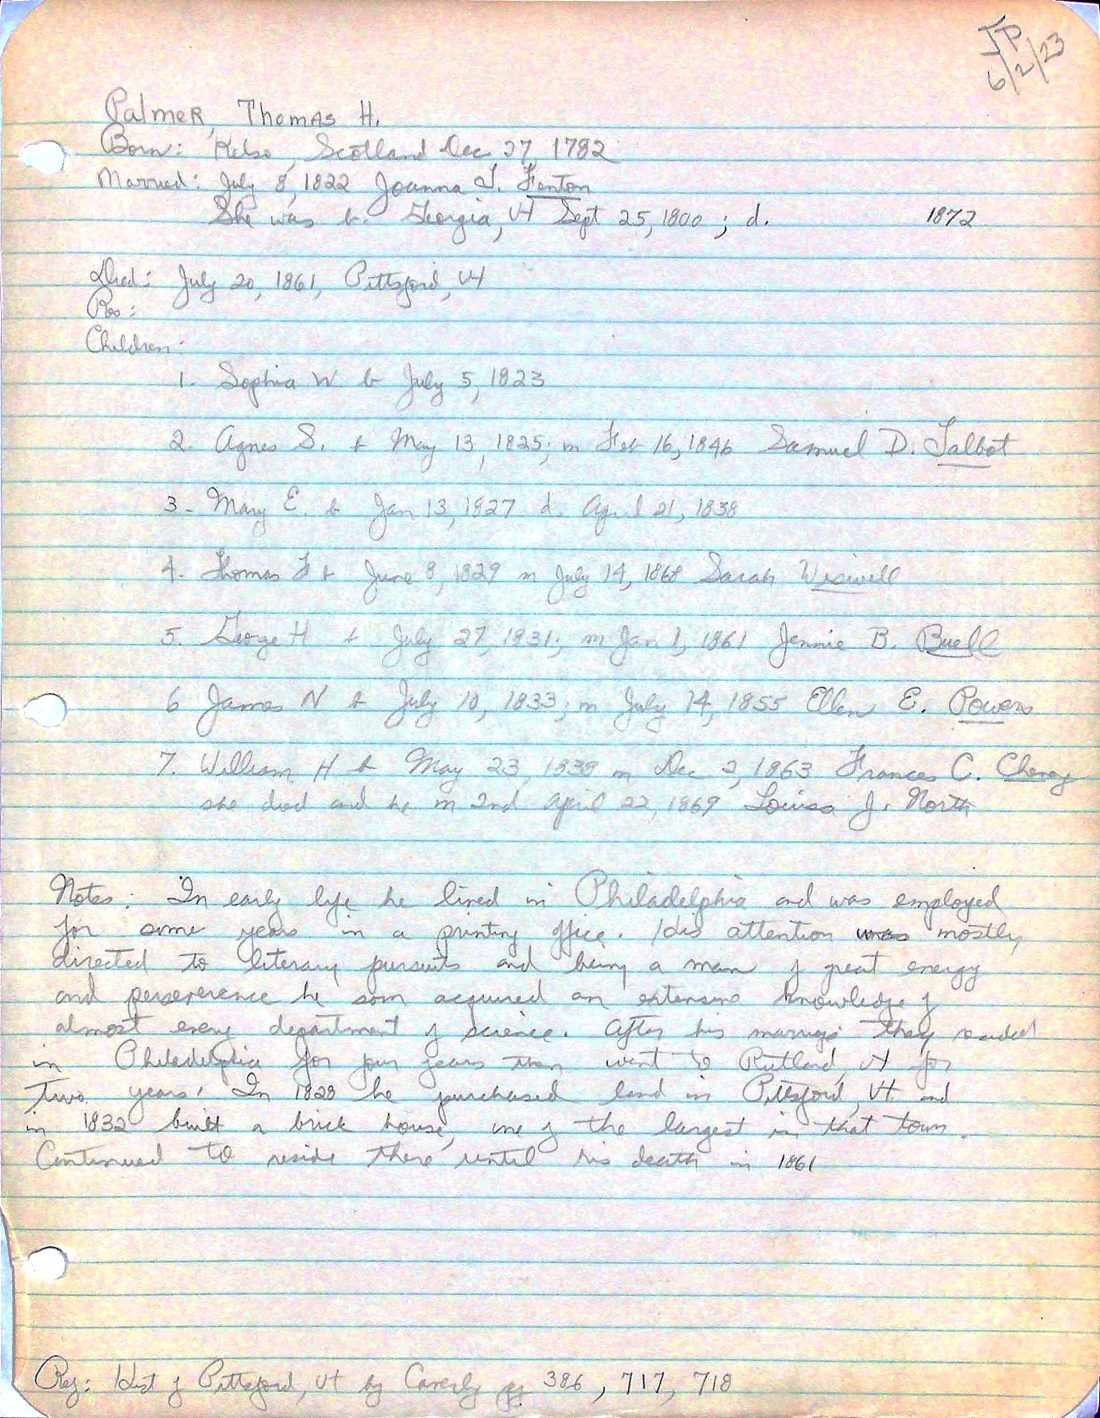 JP
6/2/23
Palmer, Thomas H.
Born: Kelso, Scotland Dec 27, 1782
Married: July 8, 1822 Joanna F. Fenton
She was b. Georgia, Vt Sept 25, 1800; d. 1872
Died: July 20, 1861, Pittsford, Vt
Res:
Children:
1. Sophia W b July 5, 1823
2. Agnes S. b May 13, 1825; m Feb 16, 1846 Samuel D. Talbot
3- Mary E. b Jan 13, 1827 d. April 21, 1838
4. Thomas F b June 8, 1829 m July 14, 1868 Sarah Wiswell
5. George H b July 27, 1831; m Jan 1, 1861 Jennie B. Buell
6 James N b July 10, 1833; m July 14, 1855 Ellen E. Powers
7. William H b May 23, 1838 m Dec 2, 1863 Frances C. Cheney
she died and he m 2nd April 22, 1869 Louisa J. North
Notes: "In early life he lived in Philadelphia and was employed
for some years in a printing office. His attention was mostly
directed to literary pursuits and being a man of great energy
and perseverence he soon acquired an extensive knowledge of
almost every department of science. After his marriage they resided
in Philadelphia for four years then went to Rutland, Vt for
two years. In 1828 he purchased land in Pittsford, Vt and
in 1832 built a brick house, one of the largest in that town.
Continued to reside there until his death in 1861
Ref: Hist of Pittsford, Vt by Caverly pg 386, 717, 718